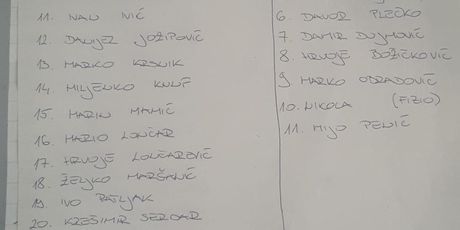 11. NAU NIĆ
12. DANIJEL JOŽIPOVIĆ
13 MARKO KRSNIK
14. MILJENKO KUNF
15. MARIN MAMIĆ
16. MARIO LONČAR
17. HRVOJE LONČAREVIĆ
18. ŽELJKO MARŠANIĆ
19. IVO PAŠLJAK
20. KREŠIMIR SERDAR
6. DAVOR PLEČKO
7. DAMIR DUJMOVIĆ
8. HRVOJE BOŽIČKOVIĆ
9 MARKO OBRADOVIĆ
10. NIKOLA (FIZIO)
11. MIJO PENIĆ